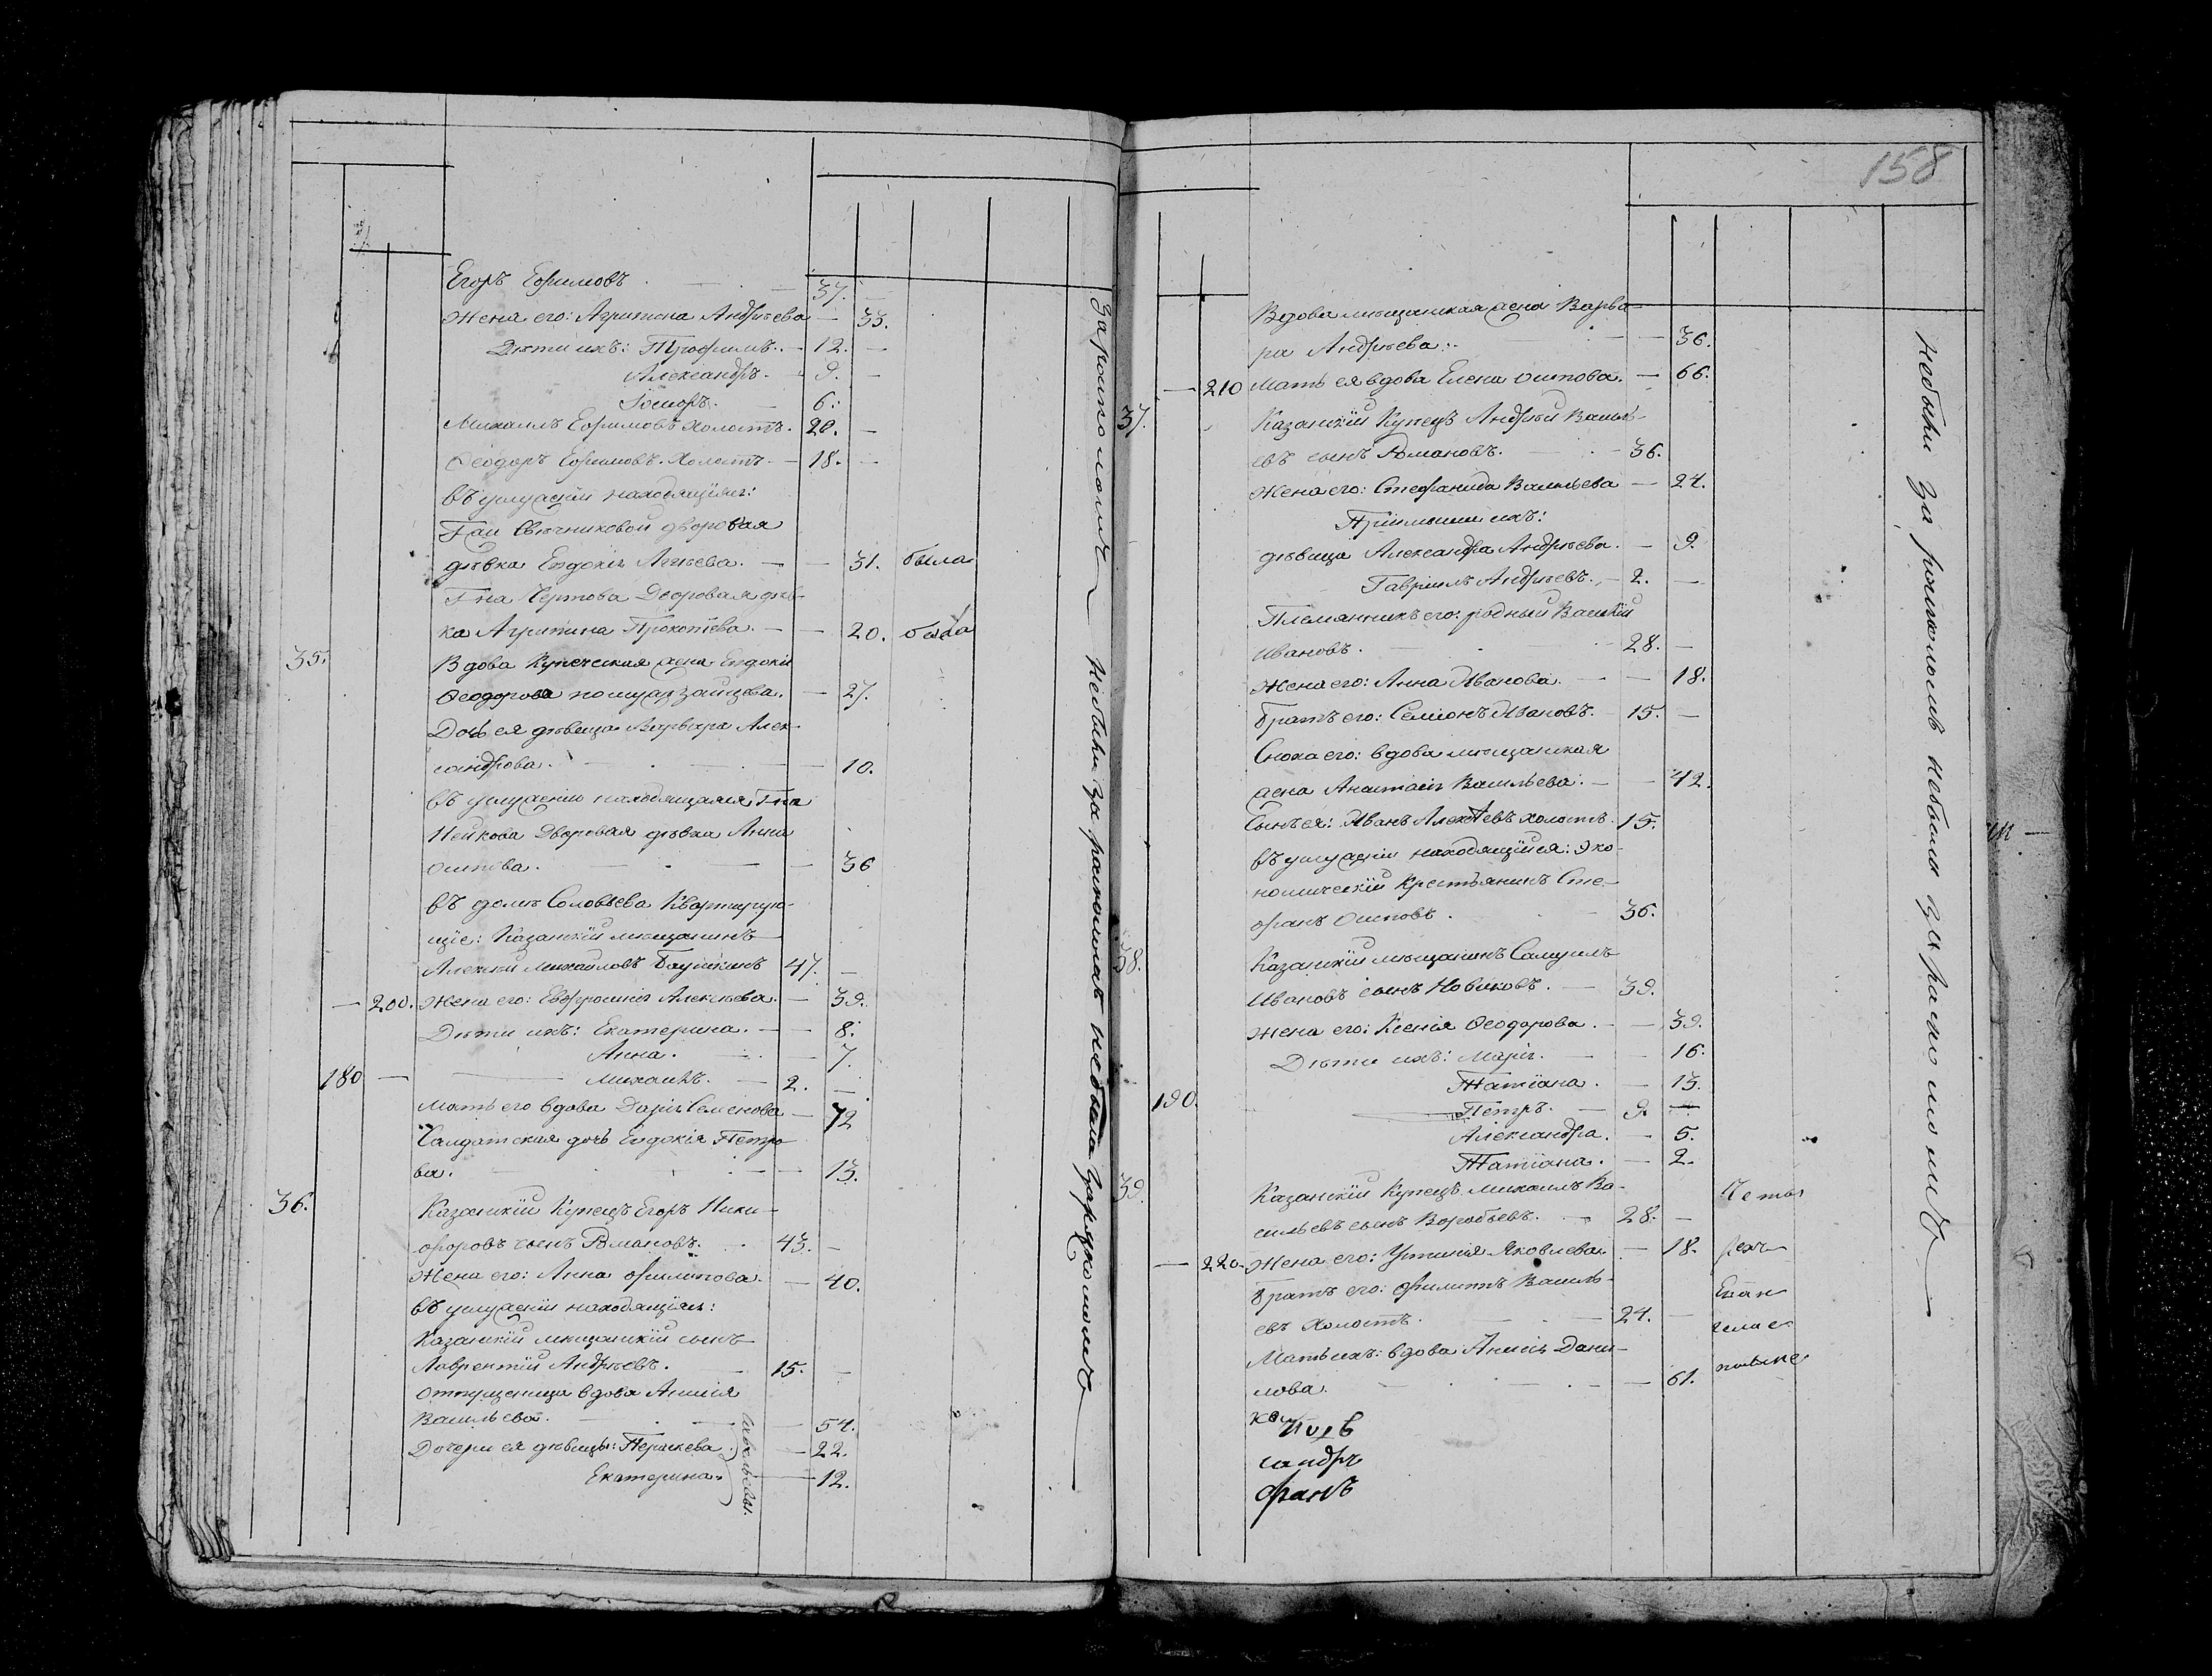 Егоръ Ефимовъ. — 37. —
Жена его: Агрипина Андрѣева — 33.
Дѣти ихъ: Трофимъ. — 12. —
Александръ. — 9. —
6.
Михаилъ Ефимовъ холостъ. 20. —
Ѳеодоръ Ефимовъ. Холостъ — 18. —
Въ услуженіи находящіяся:
Гжи Свечниковой дворовая
дѣвка Евдокія Агѣева. — — 31. была
Гна Чертова Дворовая дѣв-
ка Агрипина Прокопіева. — — 20. была
35. Вдова Купеческая жена Евдокія
Ѳеодорова по мужу Зайцева. — 27.
Дочь ея дѣвица Варвара Алек-
сандрова. — 10.
Въ услуженіи находящаяся Гна
Нейкова Дворовая дѣвка Анна
Осипова. — — 36
Въ домѣ Соловьева Квартирую-
щіе: Казанскій мѣщанинъ
Алексѣй Михайловъ 47. —
— 200. Жена его: Евфросинія Алексѣева. — 39.
Дѣти ихъ: Екатерина. — — 8.
Анна. — — 7.
180 — Михаилъ. — 2. —
Мать его вдова Дарія Семенова. — 72
Салдатская дочь Евдокія Петро-
ва. — — 13.
36. Казанскій Купецъ Егоръ Ники-
форовъ сынъ Романовъ. 43. —
Жена его: Анна Филипова. — 40.
Въ услуженіи находящіяся:
Казанскій мѣщанскій сынъ
Лаврентій Андрѣевъ. 15. —
Отпущеница вдова Анисія
Васильева. — 54.
Дочери ея дѣвицы: Параскева — 22.
Екатерина. — 12.
За раскольн. Не были за расколомъ не была за расколомъ
158
Вдова мѣщанская жена Варва-
ра Андрѣева. — — 36.
— 210 Мать ея вдова Елена Осипова. — 66.
37. Казанскій Купецъ Андрѣй Василь-
евъ сынъ Романовъ. — 36.
Жена его: Стефанида Васильева — 24.
Пріемыши ихъ:
дѣвица Александра Андрѣева. — 9.
Гавріилъ Андрѣевъ. — 2. —
Племянникъ его: родный Василій
Ивановъ. — 28. —
Жена его: Анна Иванова. — — 18.
Братъ его: Семіонъ Ивановъ. 15. —
Сноха его: вдова мѣщанская
жена Анастасія Васильева. — — 42.
Сынъ ея: Иванъ Алексѣевъ холостъ. 15.
Въ услуженіи находящійся: Эко-
номическій Крестьянинъ Сте-
фанъ Осиповъ. — 36.
38. Казанскій мѣщанинъ Самуилъ
Ивановъ сынъ Новиковъ. — 39.
Жена его: Ксенія Ѳеодорова. — — 39.
Дѣти ихъ: Марія. — — 16.
Татіана. — 13.
190. Петръ. — 9. —
Александра. — 5.
Татіана. — 2.
39. Казанскій Купецъ Михаилъ Ва-
сильевъ сынъ Воробьевъ. — 28. —
— 220. Жена его: Устинія Яковлева. — 18.
Братъ его: Филиппъ Василь-
евъ Холостъ. — 24. —
Мать ихъ: вдова Анисія Дани-
лова. — — 61.
сандръ
фанъ
Не были за расколомъ не были за расколомъ